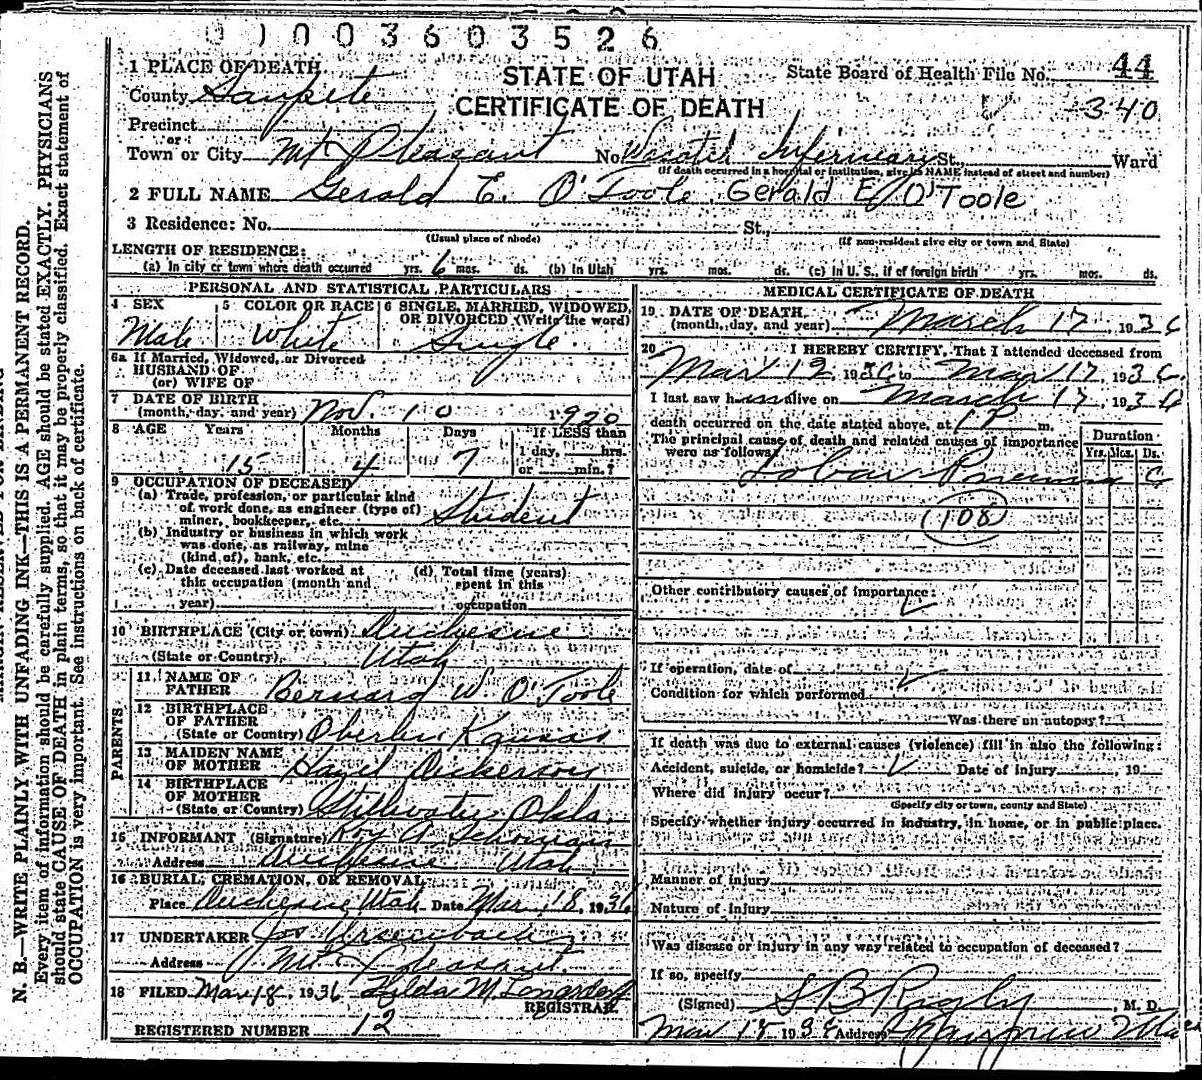 0 1 0 0 3 6 0 3 5 2 6
1 PLACE OF DEATH
STATE OF UTAH
State Board of Health File No. 44
County Sanpete
CERTIFICATE OF DEATH
340
Precinct
or
Town or City Mt Pleasant No. Wasatch Infirmary St., Ward
(If death occurred in a hospital or institution, give its NAME instead of street and number)
2 FULL NAME Gerald E. O'Toole Gerald E O'Toole
3 Residence: No. St.,
(Usual place of abode) (If non-resident give city or town and State)
LENGTH OF RESIDENCE:
(a) In city or town where death occurred yrs. 6 mos. ds. (b) In Utah yrs. mos. ds. (c) In U. S., if of foreign birth yrs. mos. ds.
PERSONAL AND STATISTICAL PARTICULARS
4 SEX 5 COLOR OR RACE 6 SINGLE, MARRIED, WIDOWED, OR DIVORCED (Write the word)
Male White Single.
6a If Married, Widowed, or Divorced
HUSBAND OF
(or) WIFE OF
7 DATE OF BIRTH
(month, day, and year) Nov. 10 1920
8 AGE Years Months Days If LESS than
15 4 7 1 day, hrs.
or min.?
9 OCCUPATION OF DECEASED
(a) Trade, profession, or particular kind
of work done, as engineer (type of)
miner, bookkeeper, etc. Student
(b) Industry or business in which work
was done, as railway, mine
(kind of), bank, etc.
(c) Date deceased last worked at (d) Total time (years)
this occupation (month and spent in this
year) occupation
10 BIRTHPLACE (City or town) Duchesne
(State or Country) Utah
PARENTS
11 NAME OF
FATHER Bernard W. O'Toole
12 BIRTHPLACE
OF FATHER
(State or Country) Oberlin Kansas
13 MAIDEN NAME
OF MOTHER Hazel Dickerson
14 BIRTHPLACE
OF MOTHER
(State or Country) Stillwater, Okla.
15 INFORMANT (Signature) Roy A.
Address Duchesne Utah
16 BURIAL, CREMATION, OR REMOVAL
Place Duchesne Utah Date Mar. 18, 1936
17 UNDERTAKER
Address Mt. Pleasant.
18 FILED Mar 18, 1936 Hilda M
REGISTRAR.
REGISTERED NUMBER 12
MEDICAL CERTIFICATE OF DEATH
19 DATE OF DEATH
(month, day, and year) March 17, 1936
20 I HEREBY CERTIFY, That I attended deceased from
Mar 12 1936 to Mar 17, 1936
I last saw him alive on March 17, 1936
death occurred on the date stated above, at 1 P m.
The principal cause of death and related causes of importance
were as follows: Duration
Yrs. Mos. Ds.
Lobar 6
108
Other contributory causes of importance:
If operation, date of
Condition for which performed
Was there an autopsy?
If death was due to external causes (violence) fill in also the following:
Accident, suicide, or homicide? Date of injury , 19
Where did injury occur?
(Specify city or town, county and State)
Specify whether injury occurred in industry, in home, or in public place.
Manner of injury
Nature of injury
Was disease or injury in any way related to occupation of deceased?
If so, specify
(Signed) S B Rigby, M. D.
Mar 18 193 Address
N. B.—WRITE PLAINLY WITH UNFADING INK—THIS IS A PERMANENT RECORD.
Every item of information should be carefully supplied. AGE should be stated EXACTLY. PHYSICIANS
should state CAUSE OF DEATH in plain terms, so that it may be properly classified. Exact statement of
OCCUPATION is very important. See instructions on back of certificate.